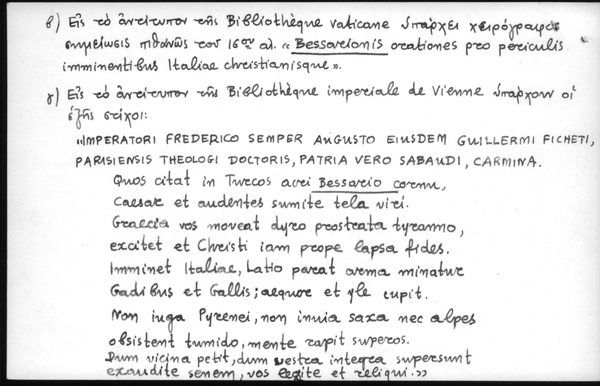 β) Εἰς τὸ ἀντίτυπον τῆς Bibliothèque vaticane ὑπάρχει χειρόγραφος
σημείωσις πιθανῶς τοῦ 16ου αἰ. «Bessarionis orationes pro periculis
imminentibus Italiae christianisque».
γ) Εἰς τὸ ἀντίτυπον τῆς Bibliothèque imperiale de Vienne ὑπάρχουν οἱ
ἑξῆς στίχοι:
«IMPERATORI FREDERICO SEMPER AUGUSTO EIUSDEM GUILLERMI FICHETI,
PARISIENSIS THEOLOGI DOCTORIS, PATRIA VERO SABAUDI, CARMINA.
Quos citat in Turcos acri Bessario cornu,
Caesar et audentes sumite tela viri.
Graecia vos moveat dyro prostrata tyranno,
excitet et Christi iam prope lapsa fides.
Imminet Italiae, Latio parat arma minatur
Gadibus et Gallis; aequore et yle cupit.
Non iuga Pyrenei, non invia saxa nec alpes
obsistent tumido, mente rapit superos.
Dum vicina petit, dum vestra integra supersunt
exaudite senem, vos legite et reliqui.»